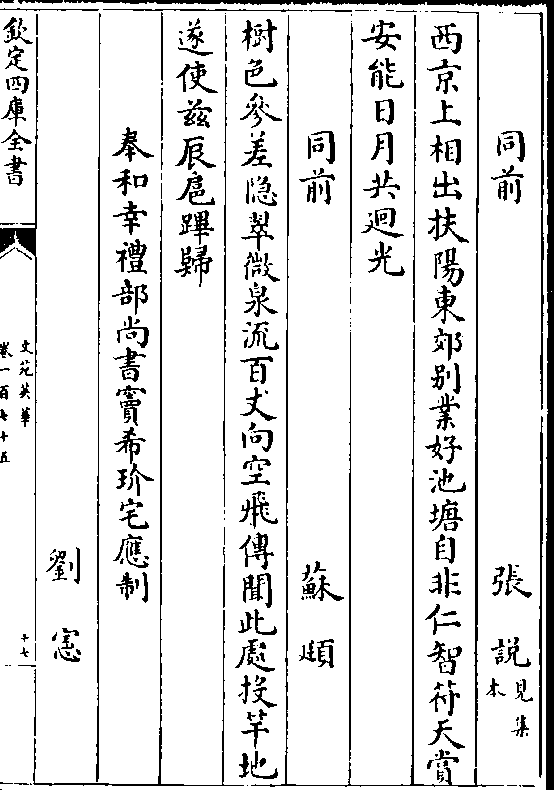 同前 張說見集本
西京上相出扶陽東郊別業好池塘自非仁智符天賞
安能日月共迴光
同前 蘇頲
樹色參差隱翠微泉流百丈向空飛傳聞此處投竿地
遂使兹辰扈蹕歸
奉和幸禮部尚書竇希玠宅應制
劉憲
欽定四庫全書
文苑英華
卷一百七十五
十七